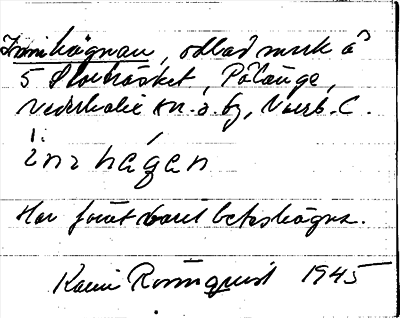 Innihägnan, odlad mark å
5 Storträsket, Pålänge,
Nederkalix sn. o. bg, Norrb. C.
inn hägan
Har förut varit beteshägna.
Karin Rönnquist 1945